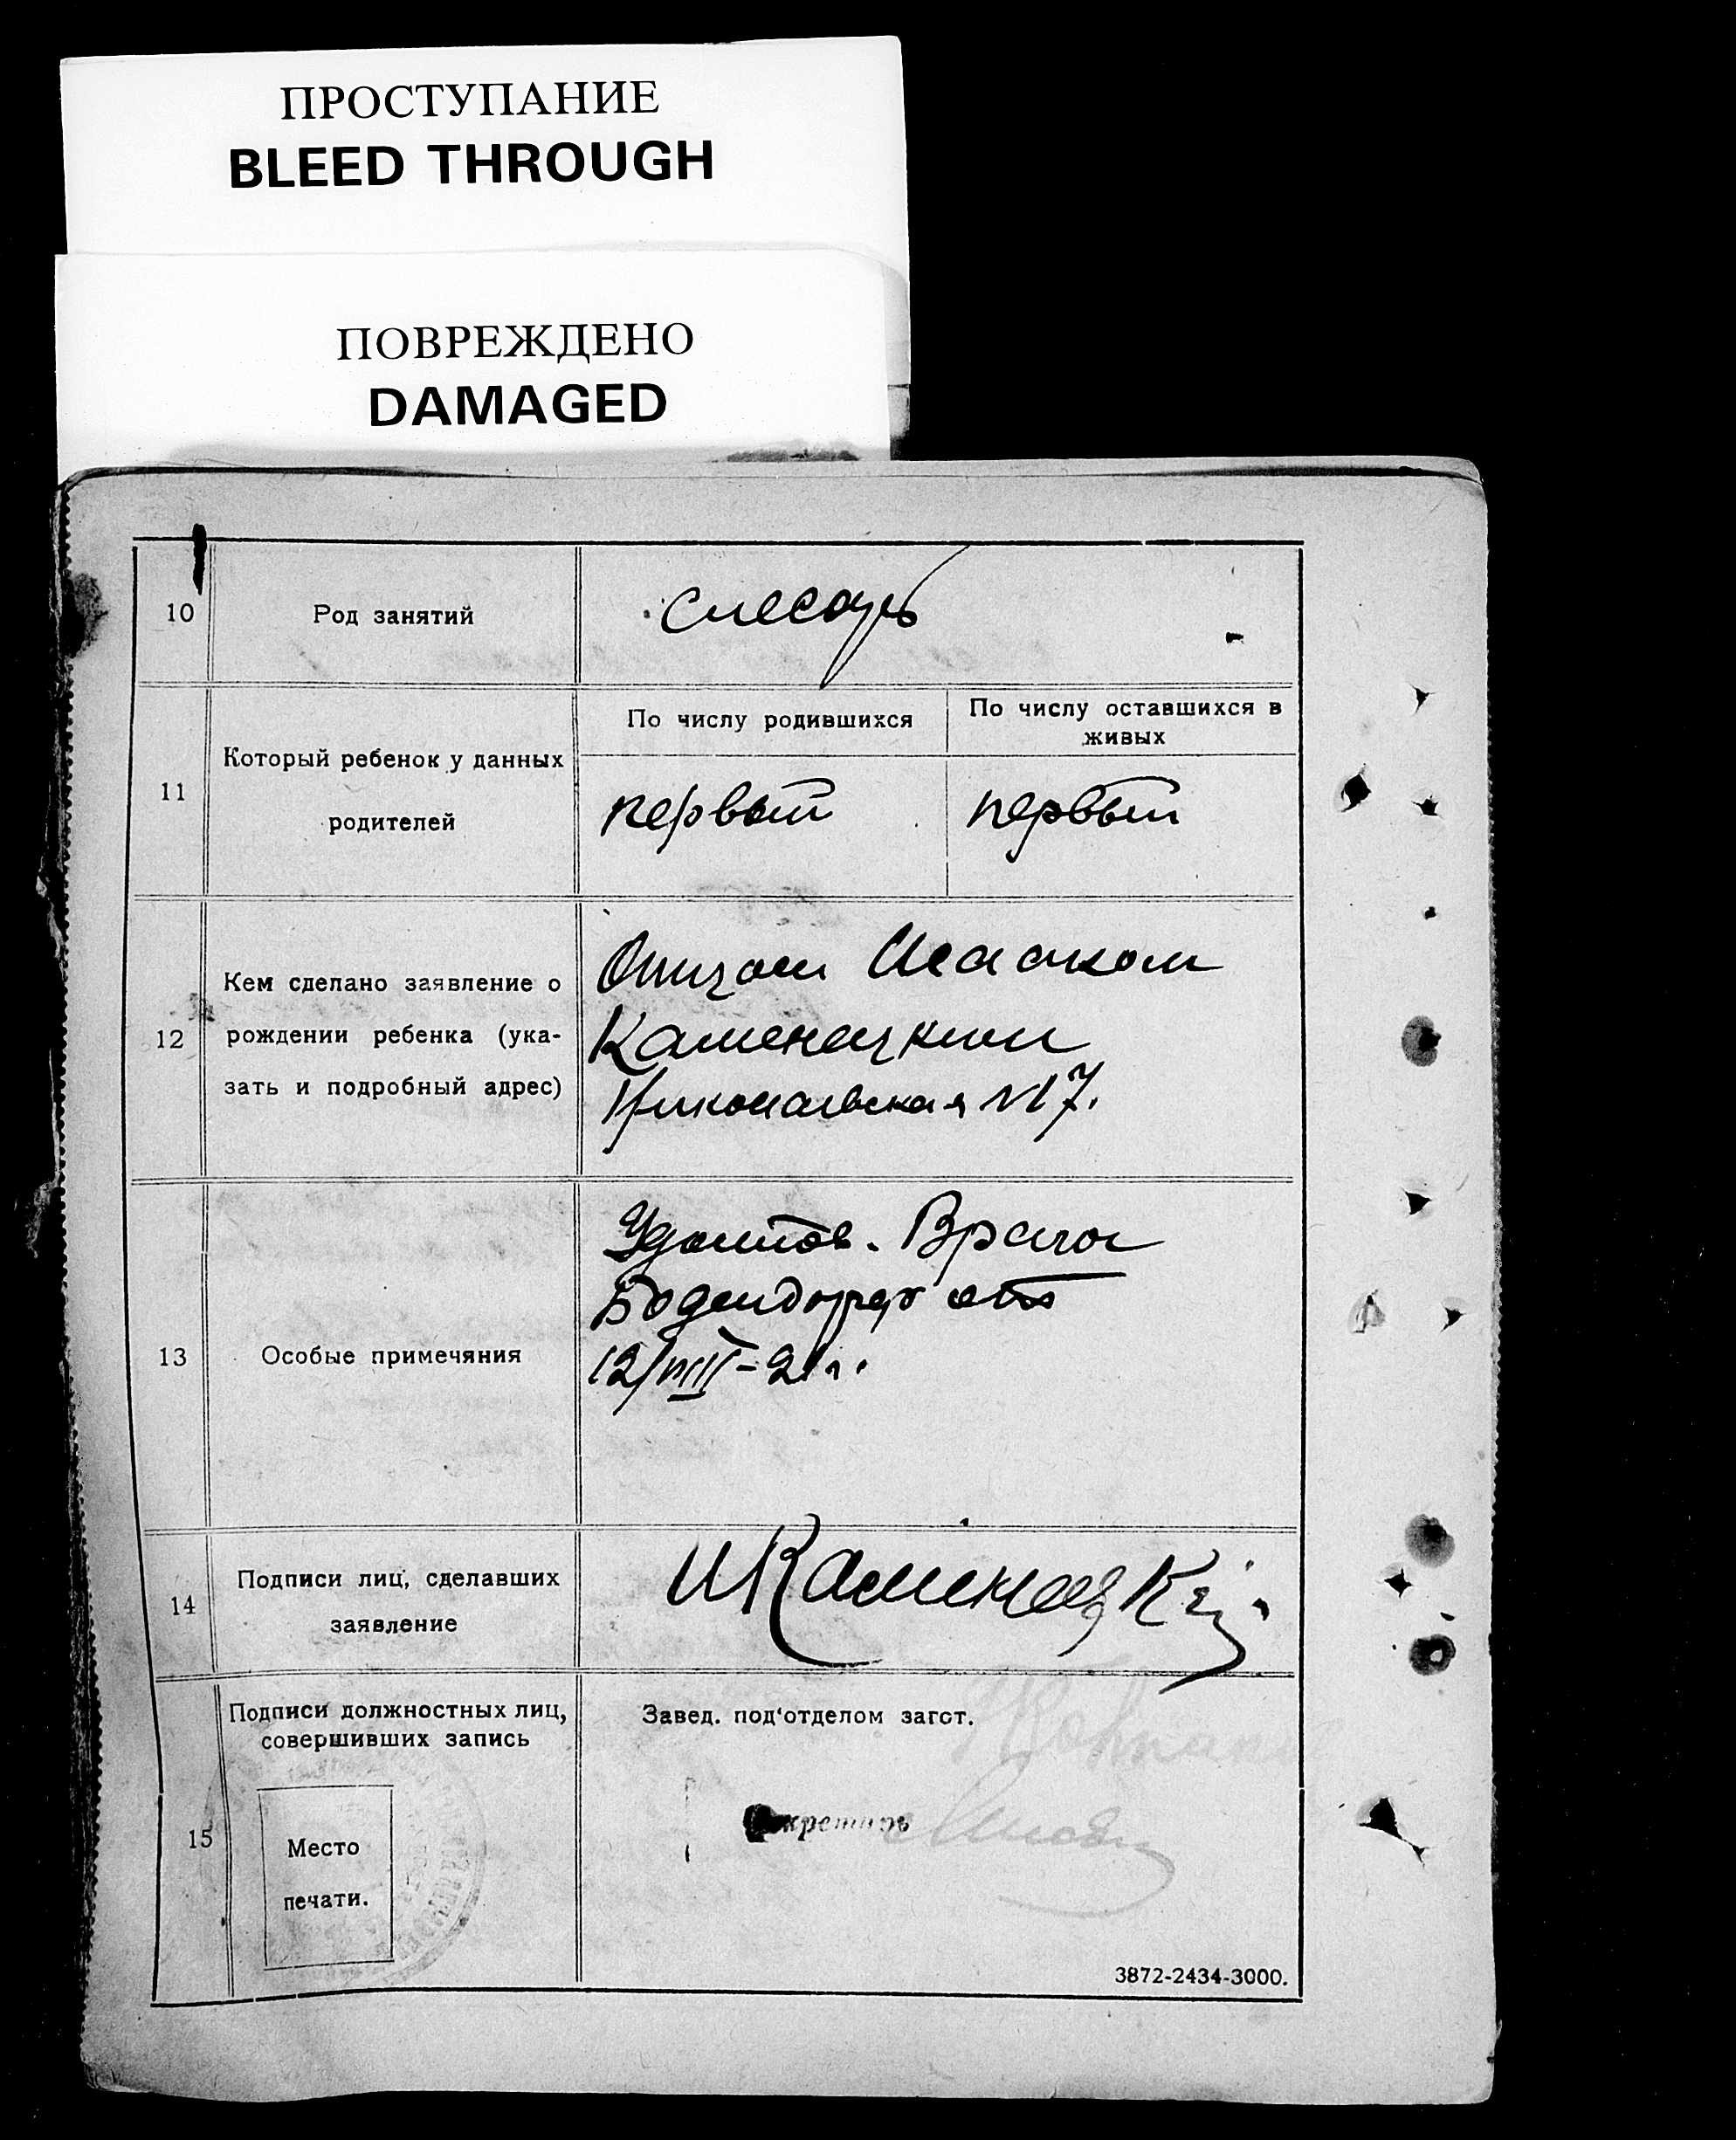 ПРОСТУПАНИЕ
BLEED THROUGH
ПОВРЕЖДЕНО
DAMAGED
10
Род занятий
слесарь
11
Который ребенок у данных
родителей
По числу родившихся
По числу оставшихся в
живых
первый
первый
12
Кем сделано заявление о
рождении ребенка (ука-
зать и подробный адрес)
Отцом Исааком
Каменецким
Николаевская №7.
13
Особые примечяния
Удостов. Врача
от
12/VIII-21г.
14
Подписи лиц, сделавших
заявление
И Каменецкий
15
Подписи должностных лиц,
совершивших запись
Место
печати.
Завед. под'отделом загст.
Секретарь
3872-2434-3000.